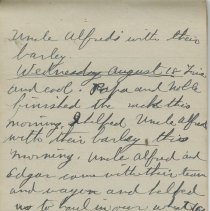 Uncle Alfred's with their
barley
Wednesday August 18 Fine
and cool. Papa and Noble
finished the
morning. I helped Uncle Alfred
with their barley this
morning. Uncle Alfred and
Edgar came with their team
and wagon and helped
us to haul in our wheat